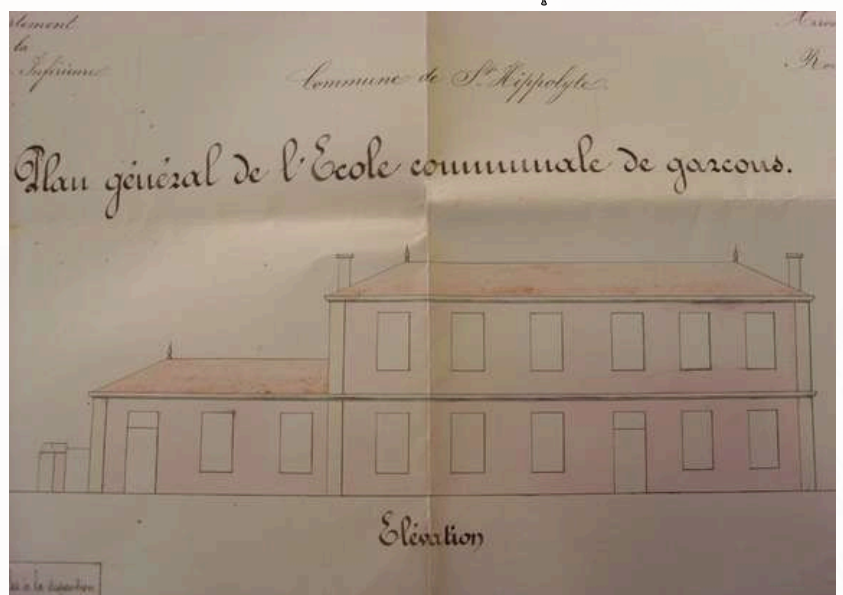 la
Inférieure
Commune de St. Hippolyte.
Plan général de l'Ecole communale de garcons.
Elévation
à la